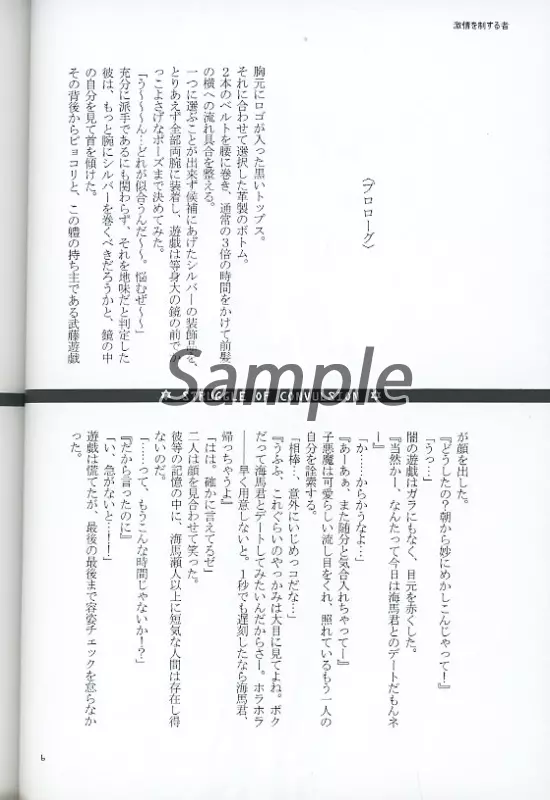 激情を制する者
〈プロローグ〉
胸元にロゴが入った黒いトップス。
それに合わせて選択した革製のボトム。
2本のベルトを腰に巻き、通常の3倍の時間をかけて前髪
の横への流れ具合を整える。
一つに選ぶことが出来ず候補にあげたシルバーの装飾品を、
とりあえず全部両腕に装着し、遊戯は等身大の鏡の前でか
っこよさげなポーズまで決めてみた。
「う～～～ん…どれが似合うんだ～～。悩むぜ～～」
充分に派手であるにも関わらず、それを地味だと判定した
彼は、もっと腕にシルバーを巻くべきだろうかと、鏡の中
の自分を見て首を傾げた。
その背後からピョコリと、この軆の持ち主である武藤遊戯
Sample
☆ STRUGGLE OF CONVULSION ☆
が顔を出した。
『どうしたの?朝から妙にめかしこんじゃって!』
「うっ…」
闇の遊戯はガラにもなく、目元を赤くした。
『当然かー、なんたって今日は海馬君とのデートだもんネ
ー』
「か……からかうなよ…」
『あーあぁ、また随分と気合入れちゃってー』
子悪魔は可愛らしい流し目をくれ、照れているもう一人の
自分を詮索する。
「相棒…、意外にいじめっコだな…」
『うふふ、これぐらいのやっかみは大目に見てよね。ボク
だって海馬君とデートしてみたいんだからさー。ホラホラ
――早く用意しないと。1秒でも遅刻したなら海馬君、
帰っちゃうよ』
「はは。確かに言えてるぜ」
二人は顔を見合わせて笑った。
彼等の記憶の中に、海馬瀬人以上に短気な人間は存在し得
ないのだ。
「……って、もうこんな時間じゃないか!?」
『だから言ったのに』
「い、急がないと…!!」
遊戯は慌てたが、最後の最後まで容姿チェックを怠らなか
った。
6